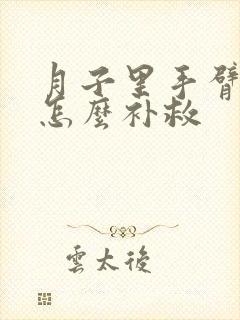 月子里手臂
怎麼补救
雲太後